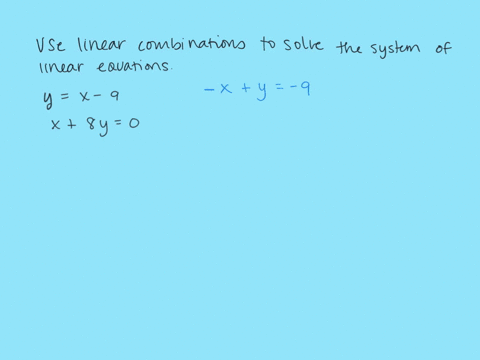 Use linear combinations to solve the system of
linear equations.
y = x - 9
-x + y = -9
x + 8y = 0